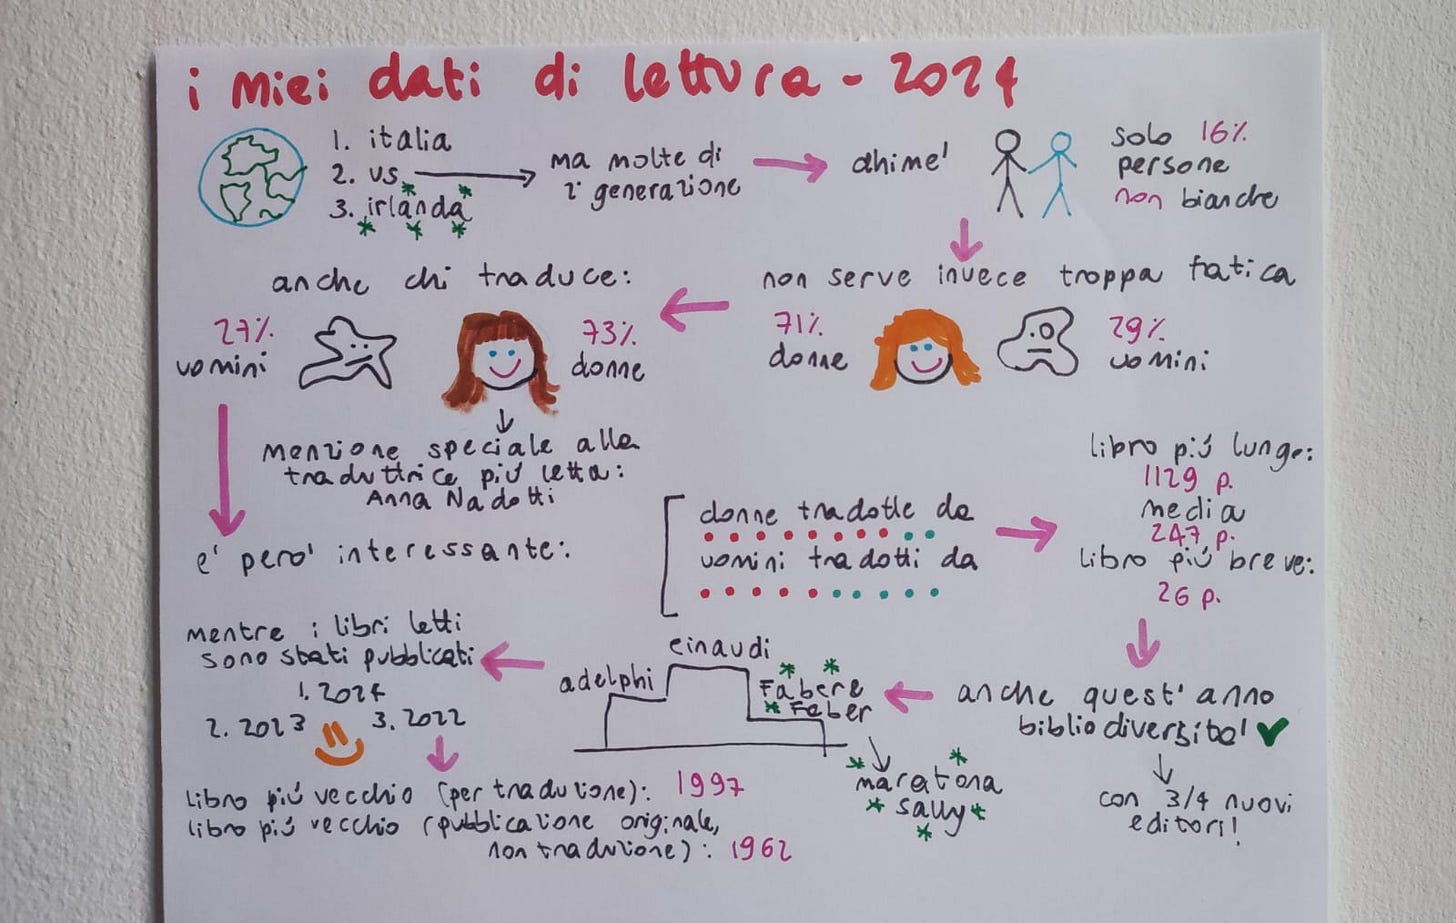 i miei dati di lettura - 2024
1. italia
2. us
3. irlanda
ma molte di
2ª generazione
ahimè!
solo 16%
persone
non bianche
non serve invece troppa fatica
71%
donne
29%
uomini
anche chi traduce:
27%
uomini
73%
donne
menzione speciale alla
traduttrice più letta:
Anna Nadotti
e' pero' interessante:
donne tradotte da
uomini tradotti da
libro più lungo:
1129 p.
media
247 p.
libro più breve:
26 p.
anche quest'anno
bibliodiversita'!
con 3/4 nuovi
editori!
einaudi
adelphi
Fabere
Faber
maratona
sally
mentre i libri letti
sono stati pubblicati
1. 2024
2. 2023
3. 2022
libro più vecchio (per traduzione): 1997
libro più vecchio (pubblicazione originale,
non traduzione): 1962